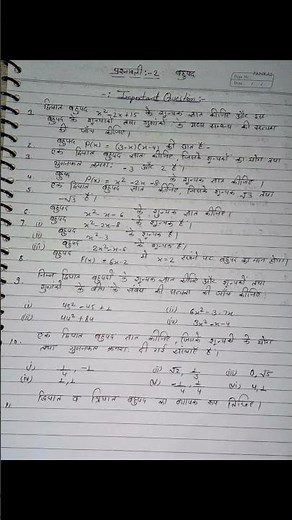 प्रश्नावली:-2 बहुपद
-: Important Question:-
1. द्विघात बहुपद x²-2x+15 के शून्यक ज्ञात कीजिए और इस
बहुपद के शून्यकों तथा गुणांकों के मध्य सम्बन्ध की सत्यता
की जाँच कीजिए।
2. बहुपद P(x) = (3-x)(x-4) की घात है:-
3. एक द्विघात बहुपद ज्ञात कीजिए, जिसके शून्यकों का योग तथा
गुणनफल क्रमशः -3 और 2 है।
4. बहुपद P(x) = x²-2x-8 के शून्यक ज्ञात कीजिए।
5. एक द्विघात बहुपद ज्ञात कीजिए, जिसके शून्यक √3 तथा
-√3 हैं।
6. बहुपद x²-x-6 के शून्यक ज्ञात कीजिए।
7. (i) बहुपद x²-2x-8 के शून्यक है।
(ii) बहुपद x²-3 के शून्यक है।
(iii) बहुपद 2x²-x-6 के शून्यक है।
8. बहुपद P(x) = 6x-2 में x=2 रखने पर बहुपद का मान होगा।
9. निम्न द्विघात बहुपदों के शून्यक ज्ञात कीजिए और शून्यकों तथा
गुणांकों के बीच के संबंध की सत्यता की जाँच कीजिए।
i) 4s²-4s+1 ii) 6x²-3-7x
iii) 4u²+8u iv) 3x²-x-4
10. एक द्विघात बहुपद ज्ञात कीजिए, जिसके शून्यकों के योग
तथा गुणनफल क्रमशः दी गई संख्याएँ हैं।
i) 1/4, -1 ii) √2, 1/3 iii) 0, √5
iv) 1, 1 v) -1/4, 1/4 vi) 4, 1
11. द्विघात व त्रिघात बहुपद का व्यापक रूप लिखिए।